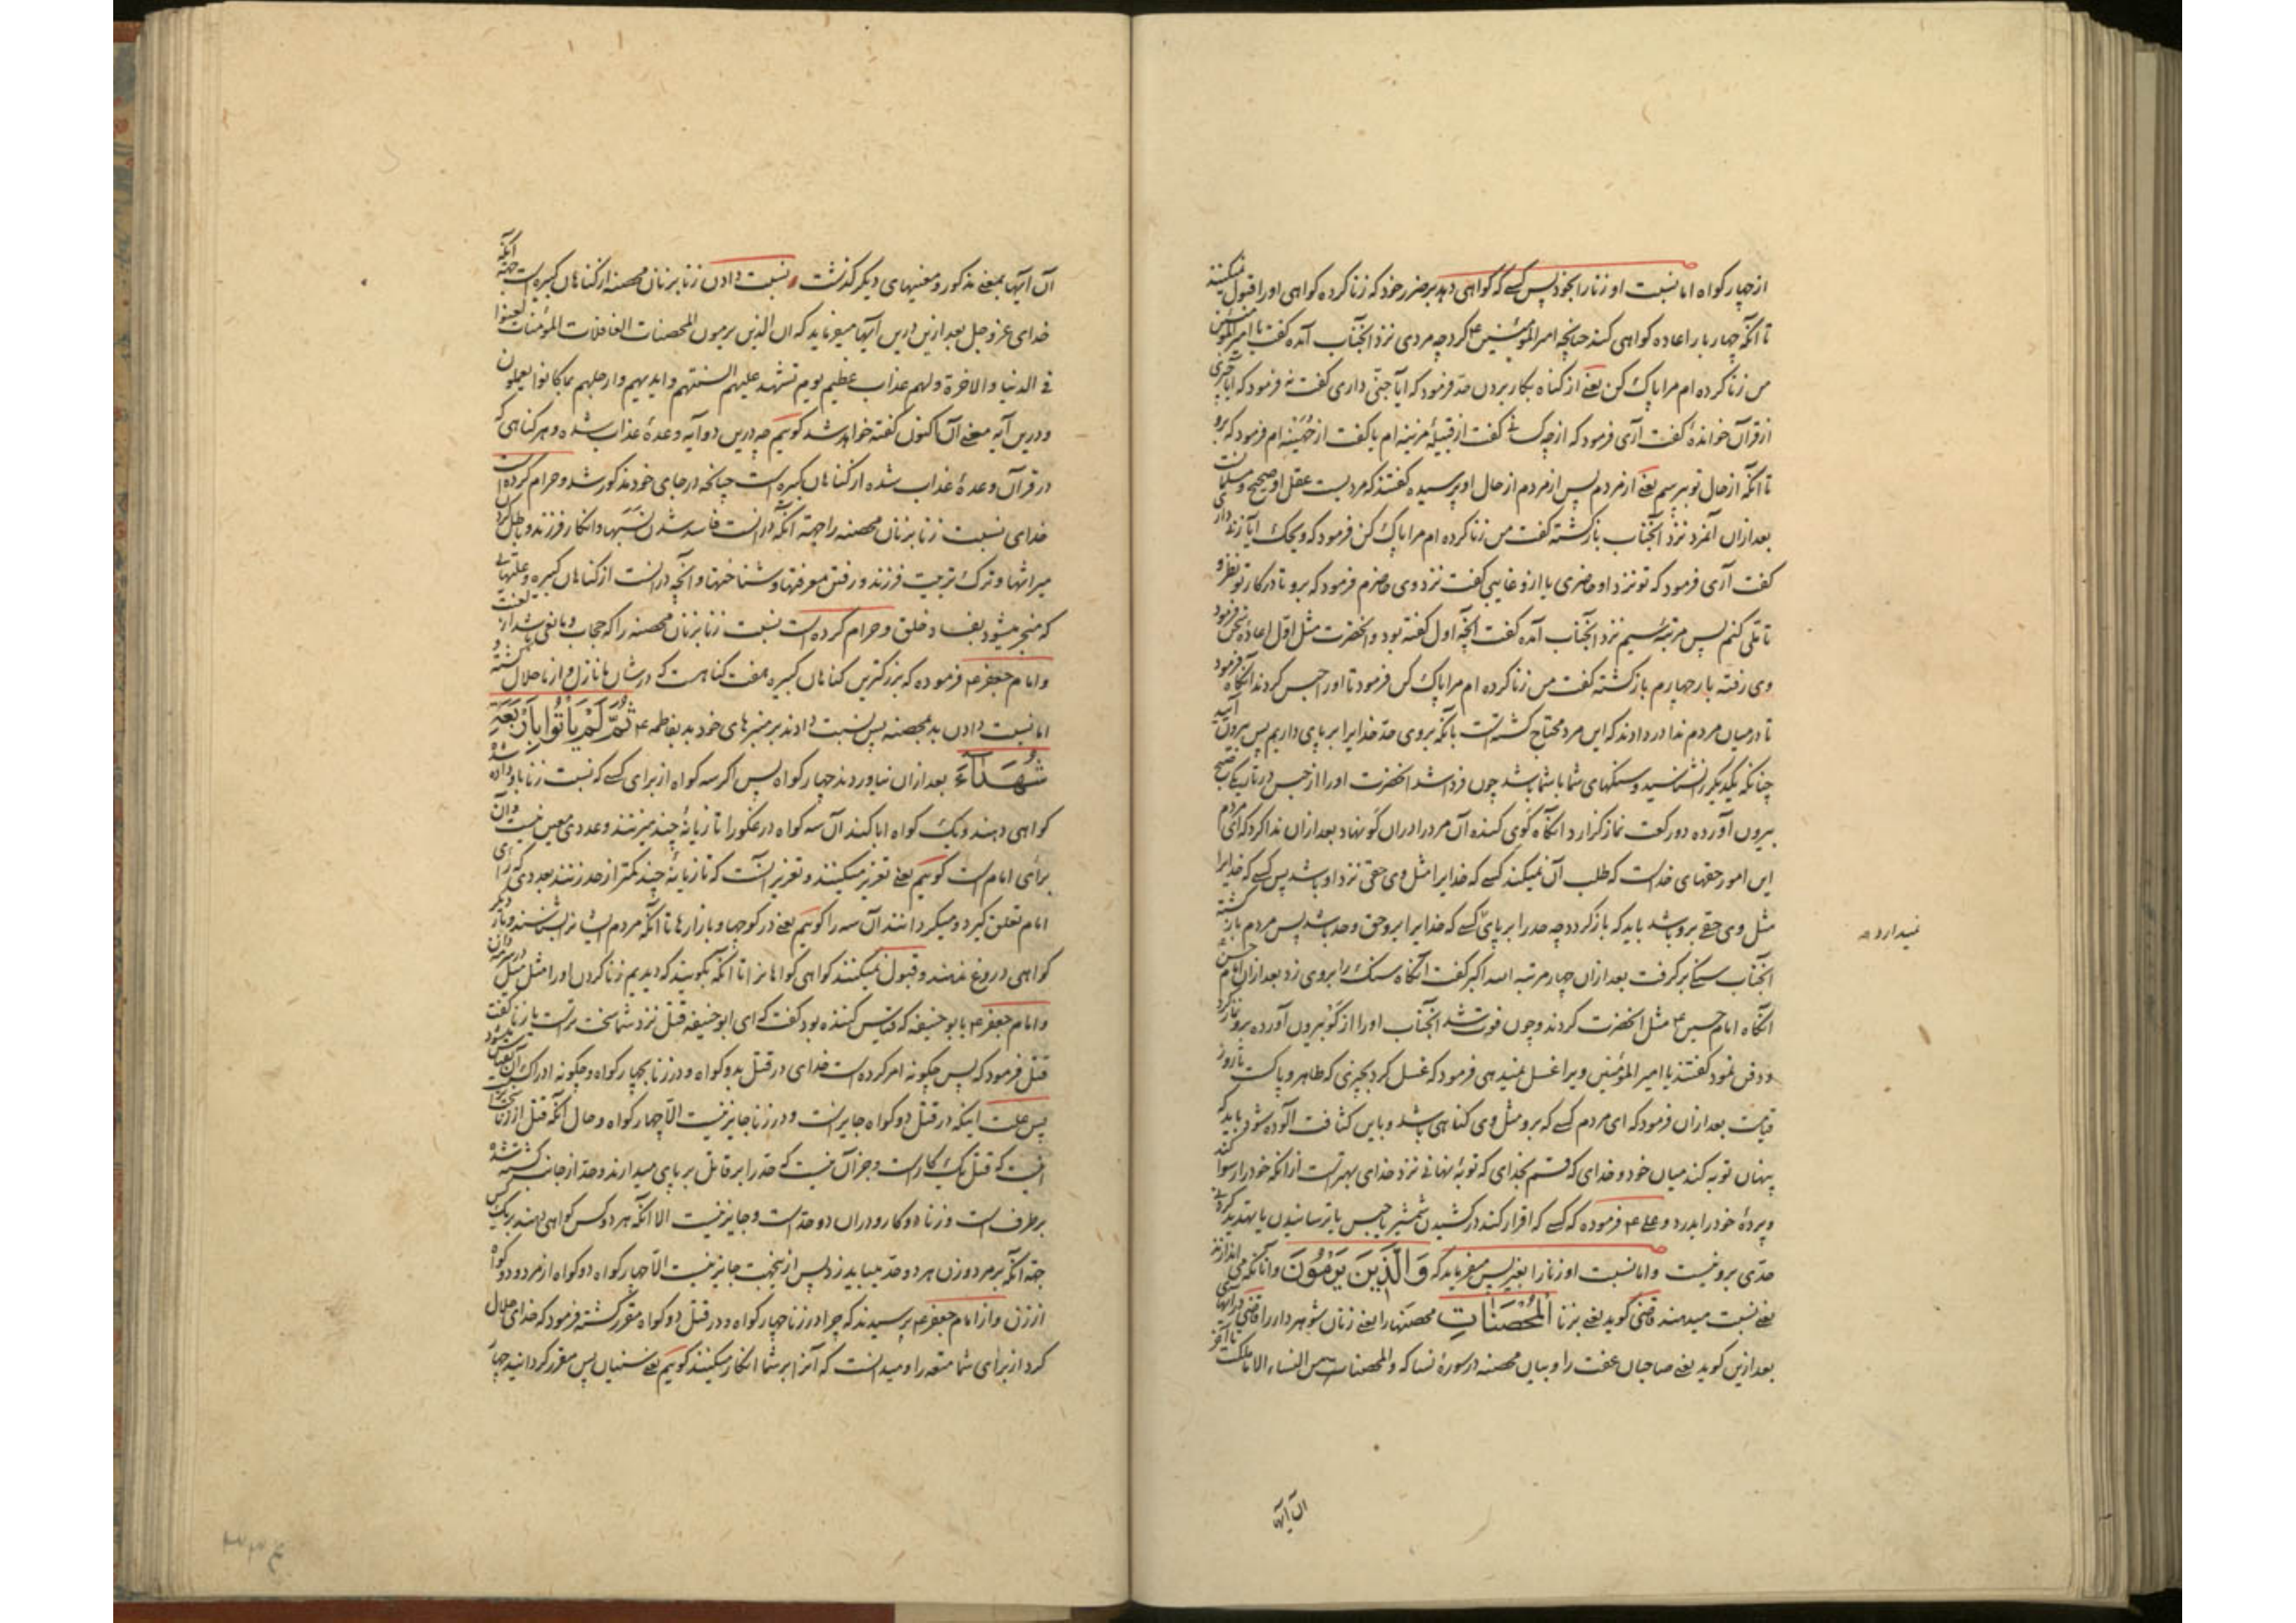 از چهار گواه اما نسبت او زنا را بخود پس کسے که گواهی دهد بر ضرر خود که زنا کرده گواهی او را قبول نمیکنند
تا آنکه چهار بار اعاده گواهی کند چنانچه امیر المؤمنین ع کرد چه مردی نزد آنجناب آمده گفت یا امیر المؤمنین
من زنا کرده ام مرا پاک کن یعنے از گناه بکار بردن حدّ فرمود که آیا جنّی داری گفت نه فرمود که آیا چیزی
از قرآن خواندهٔ گفت آری فرمود که از چه کسانی گفت از قبیلهٔ مزینه ام یا گفت از جُهَینه ام فرمود که برو
تا آنکه از حال تو بپرسم یعنے از مردم پس از مردم از حال او پرسیده گفتند که مردیست عقل او صحیح و مسلمان است
بعد ازان آنمرد نزد آنجناب بازگشته گفت من زنا کرده ام مرا پاک کن فرمود که ویحک آیا زنی داری
گفت آری فرمود که تو نزد او حاضری یا ازو غایبی گفت نزد وی حاضرم فرمود که برو تا در کار تو نظر و
تأملی کنم پس مرتبهٔ سیم نزد آنجناب آمده گفت آنچه اول گفته بود و آنحضرت مثل اوّل اعادهٔ سخن فرمود
وی رفته بار چهارم بازگشته گفت من زنا کرده ام مرا پاک کن فرمود تا او را حبس کردند آنگاه فرمود
تا در میان مردم ندا در دادند که این مرد محتاج گشته است بآنکه بروی حدّ خدایرا بر پای داریم پس بیرون آیید
چنانکه یکدیگر را نشناسید و سنگهای شما با شما باشد چون فردا شد آنحضرت او را از حبس در تاریکی صبح
بیرون آورده دو رکعت نماز گزارد آنگاه گَوی کنده آن مرد را دران گَو نهاد بعد ازان ندا کرد که ای مردم
این امور حقهای خداست که طلب آن نمیکند کسے که خدایرا مثل وی حقی نزد او باشد پس کسے که خدایرا
مثل وی حقے برو باشد باید که باز گردد چه حد را بر پای کسے که خدایرا برو حق و حد باشد پس مردم بازگشته
نمیدارد صح
آنجناب سنگے بر گرفت بعد ازان چهار مرتبه الله اکبر گفت آنگاه سنگ را بروی زد بعد ازان امام حسن
آنگاه امام حسین ع مثل آنحضرت کردند و چون فوت شد آنجناب او را از گَو بیرون آورده برو نماز کرد
و دفن نمود گفتند یا امیر المؤمنین ویرا غسل نمیدهی فرمود که غسل کرد بچیزی که طاهر و پاکست تا روز
قیامت بعد ازان فرمود که ای مردم کسے که برو مثل وی گناهی باشد و باین کثافت آلوده شود باید که
پنهان توبه کند میان خود و خدای که قسم بخدای که توبهٔ نهانے نزد خدای بهتر است ازانکه خود را رسوا کند
و پردهٔ خود را بدرد و علے ع فرموده که کسے که اقرار کند در کشیدن شمشیر یا حبس یا ترسانیدن یا تهدید کردنے
حدّی برو نیست و اما نسبت او زنا را بغیر پس میفرماید که وَالَّذِینَ یَرْمُونَ و آنانکه می اندازند
یعنے نسبت میدهند قاضی گوید یعنے بزنا الْمُحْصَنَاتِ محصنها را یعنے زنان شوهردار را قاضی در آیهای
بعد ازین گوید یعنے صاحبان عفت را و بیان محصنه در سورهٔ نسا که والمحصنات من النساء الا ما ملکت تا آخر
آن آیها
آن آیها بمعنے مذکور و معنیهای دیگر گذشت و نسبت دادن زنا بزنان محصنه از گناهان کبیره است جهته آنکه
خدای عز و جل بعد ازین درین آیها میفرماید که ان الذین یرمون المحصنات الغافلات المؤمنات لعنوا
فے الدنیا والاخرة ولهم عذاب عظیم یوم تشهد علیهم السنتهم وایدیهم وارجلهم بما کانوا یعملون
و درین آیه معنے آن تا کنون گفته خواهد شد گوییم چه درین دو آیه وعدهٔ عذاب شده و هر گناهی که
در قرآن وعدهٔ عذاب شده از گناهان کبیره است چنانچه در جای خود مذکور شد و حرام کرده است
خدای نسبت زنا بزنان محصنه را جهته آنکه درانست فاسد شدن نسبها و انکار فرزند و باطل کردن
میراثها و ترک تربیت فرزند و رفتن معرفتها و شناختها و آنچه درانست از گناهان کبیره و علتهایی
که منجر میشود بفساد خلق و حرام کرده است نسبت زنا بزنان محصنه را که حجاب و مانعی باشد از لعنت
و امام جعفر ع فرموده که بزرگترین گناهان کبیره هفت گناهست که در شان ما نازل و از ما حلال گشته
اما نسبت دادن بد بمحصنه پس نسبت دادند بر منبرهای خود بد بفاطمه ع ثُمَّ لَمْ یَأْتُوا بِأَرْبَعَةِ
شُهَدَاءَ بعد ازان نیاوردند چهار گواه پس اگر سه گواه از برای کسے که نسبت زنا باو داده شده
گواهی دهند و یک گواه ابا کند آن سه گواه دروغگو را تازیانهٔ چند میزنند و عددی معین نیست و آن
برای امام است گوییم یعنے تعزیر میکنند و تعزیر آنست که تازیانهٔ چند کمتر از حد زنند بعددی که رای
امام تعلق گیرد و میگردانند آن سه را گوییم یعنے در کوچها و بازارها تا آنکه مردم ایشانرا بشناسند و بار دیگر
گواهی دروغ ندهند و قبول نمیکنند گواهی گواهانرا تا آنکه بگویند که دیدیم زنا کردن او را مثل میل در سرمه دان
و امام جعفر ع بابو حنیفه که قیاس کننده بود گفت که ای ابو حنیفه قتل نزد شما سخت تر است یا زنا گفت
قتل فرمود که پس چگونه امر کرده است خدای در قتل بدو گواه و در زنا بچهار گواه و چگونه ادراک آن بقیاس میشود
پس علت اینکه در قتل دو گواه جایز است و در زنا جایز نیست الّا چهار گواه و حال آنکه قتل از زنا سخت تر
اینست که قتل یک کار است و جز آن نیست که حدّ را بر قاتل بر پای میدارند و حدّ از جانب کشته شده
برطرف است و زنا دو کار و دران دو حدّ است و جایز نیست الا آنکه هر دو کس گواهی دهند بر یک کس
جهته آنکه بر مرد و زن هر دو حدّ میباید زد پس ازینجهت جایز نیست الّا چهار گواه دو گواه از مرد و دو گواه
از زن و از امام جعفر ع پرسیدند که چرا در زنا چهار گواه و در قتل دو گواه مقرر گشته فرمود که خدای حلال
کرد از برای شما متعه را و میدانست که آنرا بر شما انکار میکنند گوییم یعنے سنیان پس مقرر گردانید چهار